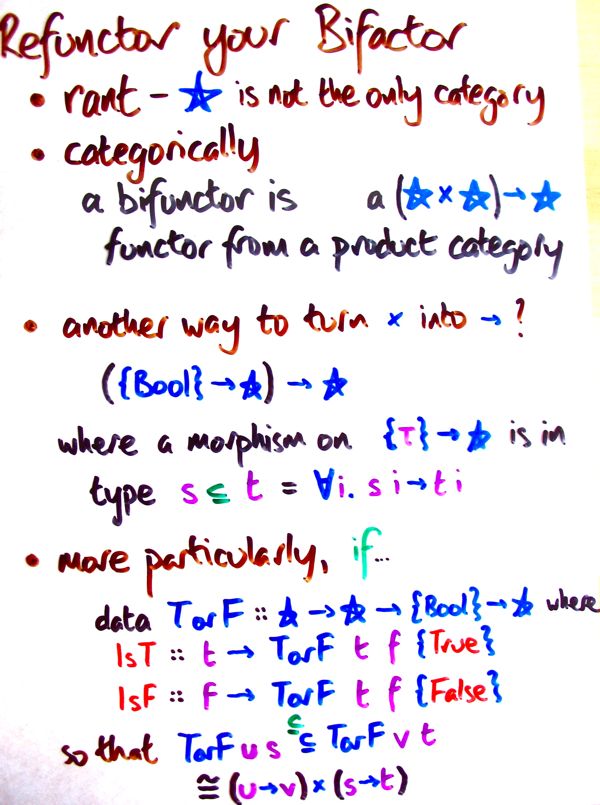 Refunctor your Bifactor
• rant - ☆ is not the only category
• categorically
a bifunctor is a (☆ × ☆) → ☆
functor from a product category
• another way to turn × into → ?
({Bool} → ☆) → ☆
where a morphism on {τ} → ☆ is in
type s ⊆ t = ∀i. s i → t i
• more particularly, if...
data TorF :: ☆ → ☆ → {Bool} → ☆ where
IsT :: t → TorF t f {True}
IsF :: f → TorF t f {False}
so that TorF u s ⊆ TorF v t
≅ (u→v) × (s→t)